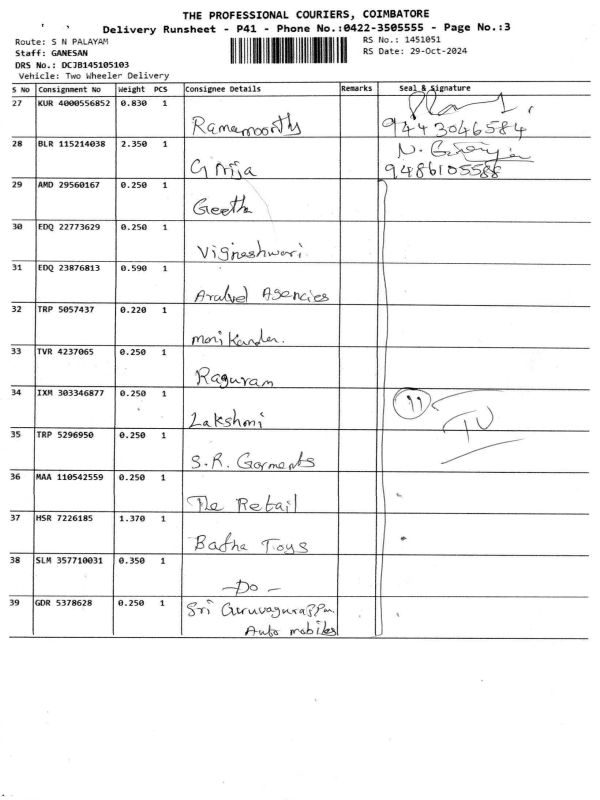 THE PROFESSIONAL COURIERS, COIMBATORE
Delivery Runsheet - P41 - Phone No.:0422-3505555 - Page No.:3
Route: S N PALAYAM
RS No.: 1451051
Staff: GANESAN
RS Date: 29-Oct-2024
DRS No.: DCJB145105103
Vehicle: Two Wheeler Delivery
S No Consignment No Weight PCS Consignee Details Remarks Seal & Signature
27 KUR 4000556852 0.830 1
Ramamoorthy 9443046584
28 BLR 115214038 2.350 1
Girija 9486105588
29 AMD 29560167 0.250 1
Geetha
30 EDQ 22773629 0.250 1
Vigneshwari
31 EDQ 23876813 0.590 1
Agencies
32 TRP 5057437 0.220 1
33 TVR 4237065 0.250 1
Raguram
34 IXM 303346877 0.250 1 11
Lakshmi
35 TRP 5296950 0.250 1
S.R. Garments
36 MAA 110542559 0.250 1
The Retail
37 HSR 7226185 1.370 1
Toys
38 SLM 357710031 0.350 1
-Do-
39 GDR 5378628 0.250 1
Sri
Auto mobiles